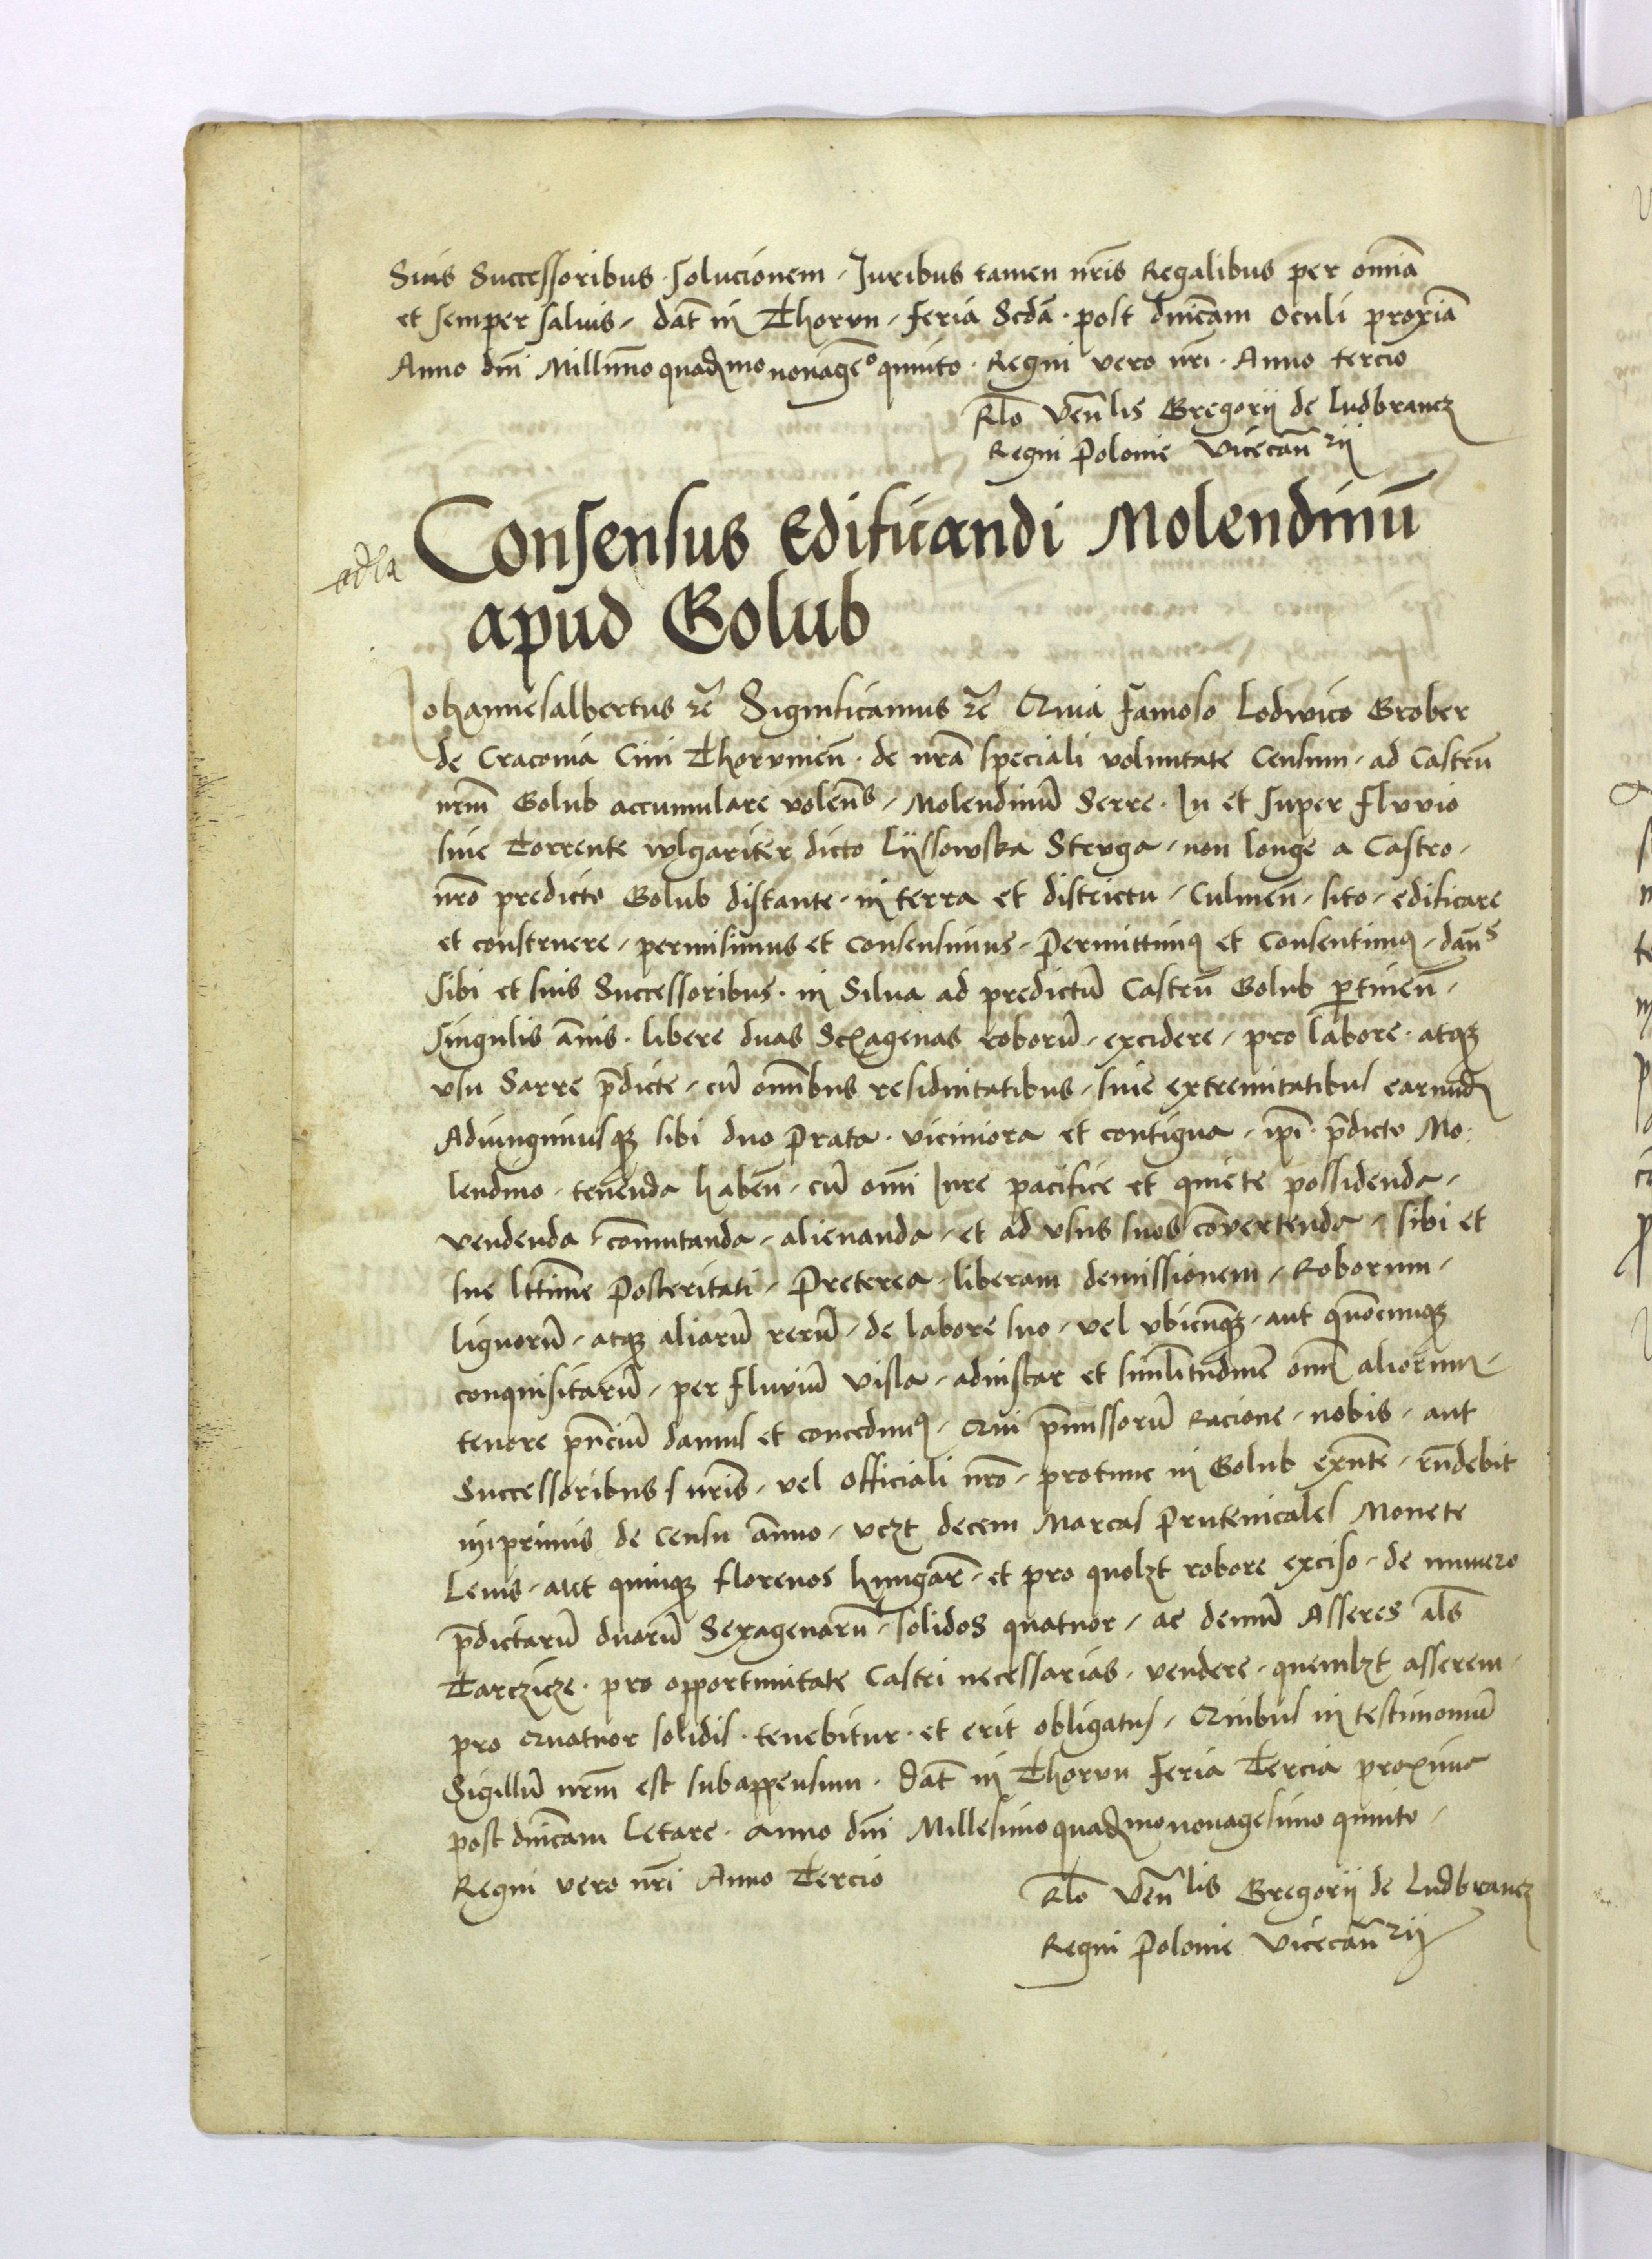 Suis Successoribus · solucionem / Juribus tamen nr̄is Regalibus per om̄ia
et semper saluis / dat̄ in Thorvn / feria Scd̄a · post dn̄icam Oculi proxīa
Anno dn̄i Millīmo quadꝛmo nonagēo quinto · Regni vero nr̄i · Anno tercio
Rlo Ven̄lis Gregorij de Ludbrancz
Regni Polonie Vicecan̄rij
Consensus Edificandi Molendinū
apud Golub
Johannesalbertus ꝛc̄ Significamus ꝛc̄ Quia famoso Lodwico Grober
de Cracouia Ciui Thorvnien̄ · de nr̄a speciali voluntate Censum / ad Castrū
nrm̄ Golub accumulare volen̄s / Molendinū Serre · In et super fluvio
siue Torrente wlgariter dicto Lÿssowska Struga / non longe a Castro /
nr̄o predicto Golub distante · in terra et districtu / Culmen̄ / sito / edificare
et construere / permisimus et consensimus / Permittimꝰ et Consentimꝰ / dan̄s
sibi et suis Successoribus · in Silua ad predictū Castrū Golub ꝑtinen̄ /
singulis an̄is · libere duas Sexagenas roborū / excidere / pro labore · atqꝫ
vsu Sarre p̄dicte / cū om̄ibus residuitatibus / siue extremitatibus earundꝫ
Adiungimusqꝫ sibi duo Prata · viciniora et contigua / ip̄i · p̄dicto Mo:
lendino / tenenda haben̄ / cū om̄i Iure pacifice et quiete possidenda /
vendenda / com̄utanda / alienanda / et ad vsus suos cōvertenda / sibi et
sue lt̄time Posteritati / Preterea / liberam demissionem / Roborum /
lignorū / atqꝫ aliarū rerū / de labore suo / vel vbicūqꝫ / aut quōcunqꝫ
conquisitarū / per fluviū Visla / adinstar et similitudinē om̄ aliorum /
tenore pn̄ciū damus et concedimꝰ / Qui p̄missorū Racione / nobis / aut
Successoribus nr̄is / vel officiali nr̄o / protunc in Golub exn̄te / rn̄debit
inprimis de Censu an̄uo / vczt decem Marcas Prutenicales Monete
Leuis / aut quinqꝫ florenos hungar̄ / et pro quolzt robore exciso / de numero
p̄dictarū duarū Sexagenarū / solidos quatuor / ac demū Asseres al̄s
Tarczicze · pro opportunitate Castri necessarias / vendere / quemlzt asserem /
pro Quatuor solidis · tenebitur · et erit obligatus / Quibus in testimoniū
Sigillū nrm̄ est subappensum · Dat̄ in Thorvn feria Tercia proxima
post dn̄icam Letare · anno dn̄i Millesimoquadꝛmononagesimo quinto /
Regni vero nr̄i Anno Tercio
Rlo Ven̄lis Gregorij de Ludbrancz
Regni Polonie Vicecan̄rij